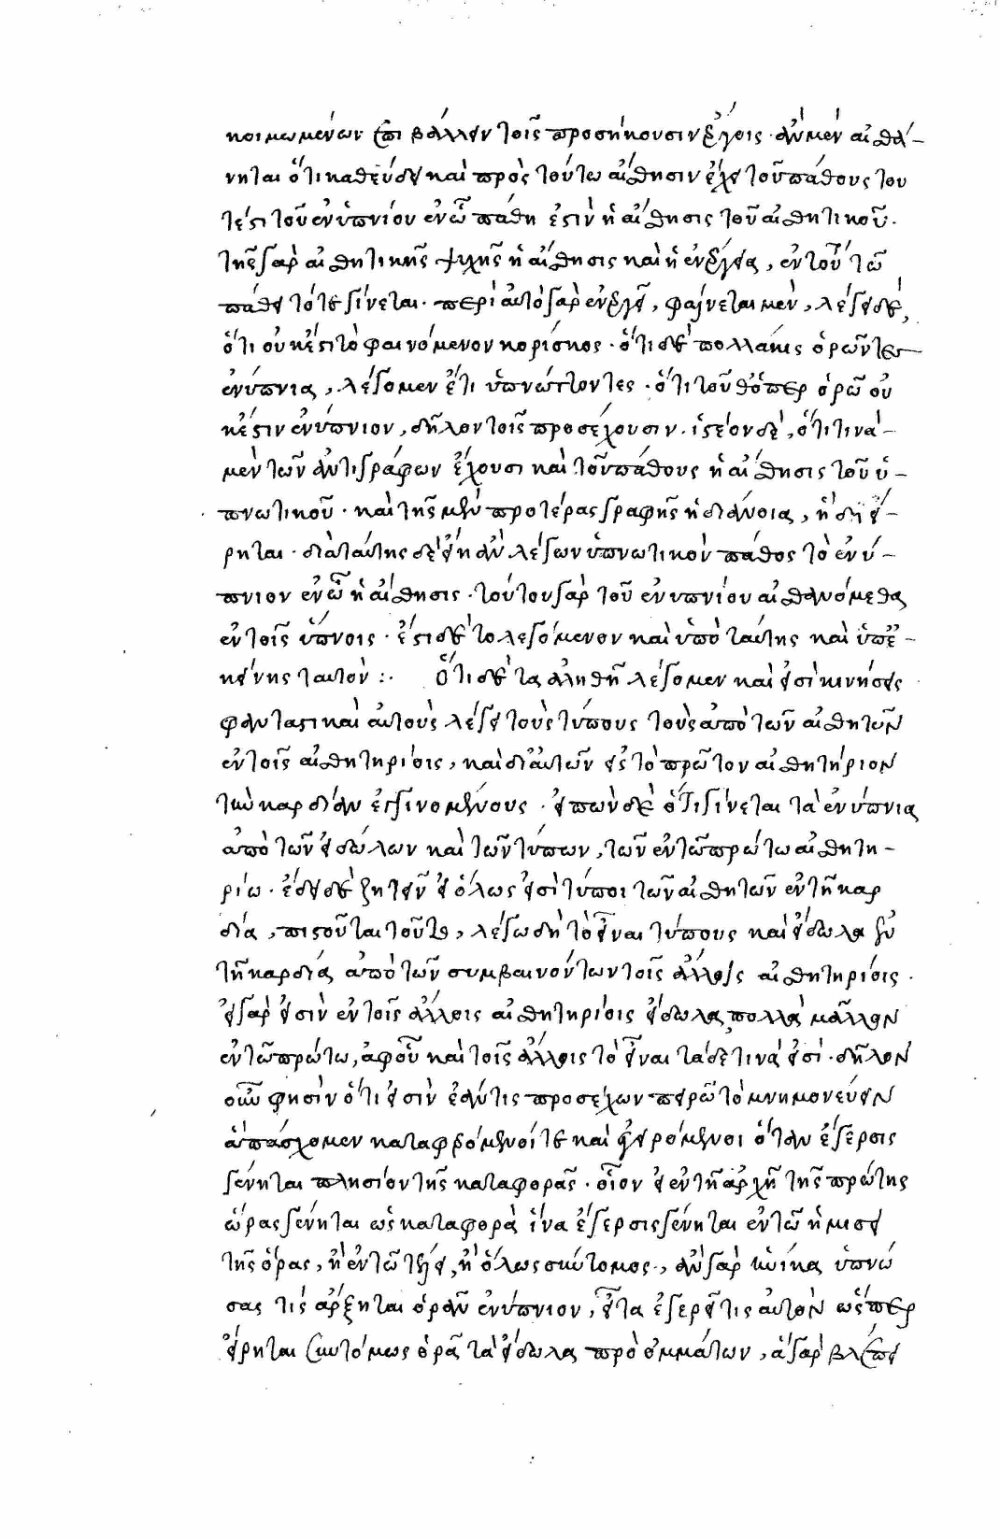 κοιμωμένων ἐπιβάλλειν τοῖς προσήκουσιν ἔργοις· ἂν μὲν αἰσθά-
νηται ὅτι καθεύδει καὶ πρὸς τούτω αἴσθησιν ἔχει τοῦ πάθους του
τέστι τοῦ ἐνυπνίου ἐν ᾧ πάθη ἐστὶν ἡ αἴσθησις τοῦ αἰσθητικοῦ·
τῆς γὰρ αἰσθητικῆς ψυχῆς ἡ αἴσθησις καὶ ἡ ἐνέργεια, ἐν τούτω τῶ
πάθει τότε γίνεται· περὶ αὐτὸ γὰρ ἐνεργεῖ, φαίνεται μὲν, λέγει δὲ,
ὅτι οὐκ ἔστι τὸ φαινόμενον κορίσκος· ὅτι δὲ πολλάκις ὁρῶντες
ἐνύπνια, λέγομεν ἔτι ὑπνώττοντες· ὅτι τοῦθ' ὅπερ ὁρῶ οὐ
κ ἔστιν ἐνύπνιον, δῆλον τοῖς προσέχουσιν. ἰστέον δὲ, ὅτι τινὰ-
μὲν τῶν ἀντιγράφων ἔχουσι καὶ τοῦ πάθους ἡ αἴσθησις τοῦ ὑ-
πνωτικοῦ· καὶ τῆς μὲν προτέρας γραφῆς ἡ διάνοια, ἤδη εἴ-
ρηται· διὰ ταύτης δὲ εἴη ἂν λέγων ὑπνωτικὸν πάθος τὸ ἐνύ-
πνιον ἐν ᾧ ἡ αἴσθησις· τούτου γὰρ τοῦ ἐνυπνίου αἰσθανόμεθα
ἐν τοῖς ὕπνοις· ἔστι δὲ τὸ λεγόμενον καὶ ὑπὸ ταύτης καὶ ὑπ' ἐ-
κείνης ταυτόν :· Ὅτι δὲ τἀληθῆ λέγομεν καὶ εἰσὶ κινήσεις
φανταστικαὶ αὐτοὺς λέγει τοὺς τύπους τοὺς ἀπὸ τῶν αἰσθητῶν
ἐν τοῖς αἰσθητηρίοις, καὶ δι' αὐτῶν εἰς τὸ πρῶτον αἰσθητήριον
τὴν καρδίαν ἐγγινομένους· εἰπὼν δὲ ὅτι γίνεται τὰ ἐνύπνια
ἀπὸ τῶν εἰδώλων καὶ τῶν τύπων, τῶν ἐν τῶ πρώτω αἰσθητη-
ρίω· ἔδει δὲ ζητεῖν εἰ ὅλως εἰσὶ τύποι τῶν αἰσθητῶν ἐν τῆ καρ
δία, πιστοῦται τοῦτο, λέγω δὴ τὸ εἶναι τύπους καὶ εἴδωλα ἐν
τῆ καρδία ἀπὸ τῶν συμβαινόντων τοῖς ἄλλοις αἰσθητηρίοις·
εἰ γὰρ εἰσὶν ἐν τοῖς ἄλλοις αἰσθητηρίοις εἴδωλα, πολλὰ μᾶλλον
ἐν τῶ πρώτω, ἀφ' οὗ καὶ τοῖς ἄλλοις τὸ εἶναι τάδε τινὰ εἰσὶ· δῆλον
οὖν φησὶν ὅτι εἰσὶν ἐάν τις προσέχων πειρῶτο μνημονεύειν
ἃ πάσχομεν καταφερόμενοί τε καὶ ἐγειρόμενοι ὅταν ἔγερσις
γένηται πλησίον τῆς καταφορᾶς· οἷον εἰ ἐν τῆ ἀρχῆ τῆς πρώτης
ὥρας γένηται ὡς καταφορὰ ἵνα ἔγερσις γένηται ἐν τῶ ἡμίσει
τῆς ὥρας, ἢ ἐν τῶ τέλει, ἢ ὅλως σύντομος, ἂν γὰρ ἡνίκα ὑπνώ
σας τίς ἄρξηται ὁρᾶν ἐνύπνιον, εἶτα ἐγερεῖ τις αὐτὸν ὥσπερ
εἴρηται συντόμως ὁρᾶ τὰ εἴδωλα πρὸ ὀμμάτων, ἃ γὰρ βλέπει